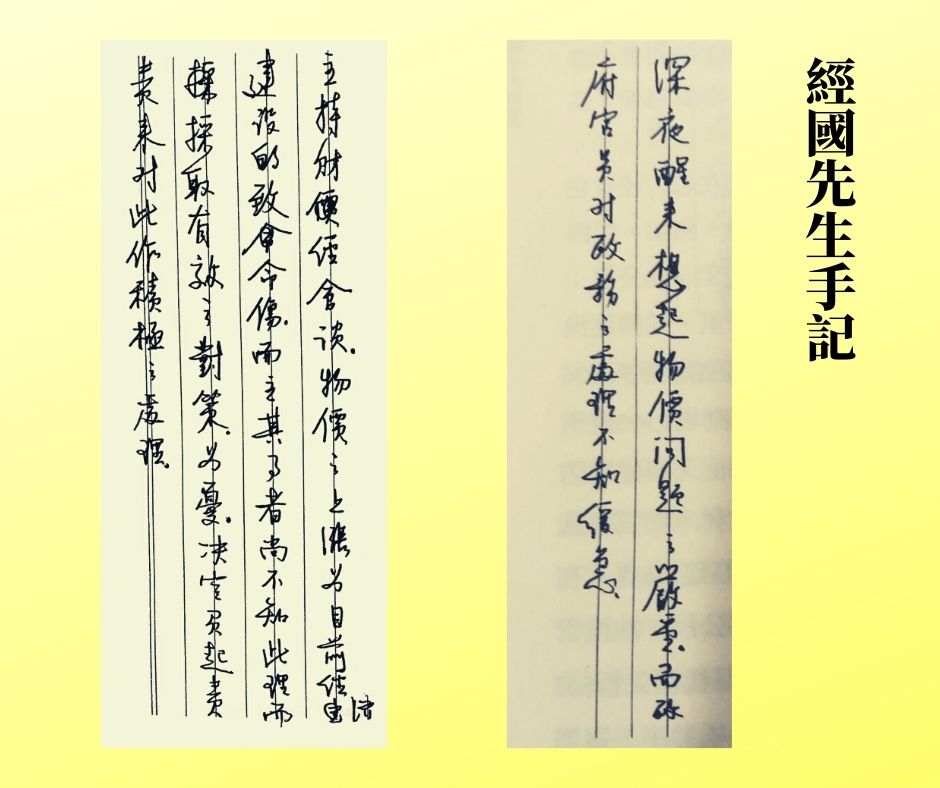 經國先生手記
深夜醒來想起物價問題之嚴重而政
府官員對政務之處理不知緩急
主持財價經會談。物價之上漲為目前經濟
建設的致命傷而主其事者尚不知此理而
採取有效之對策。為憂。決定負起責
責來對此作積極之處理。